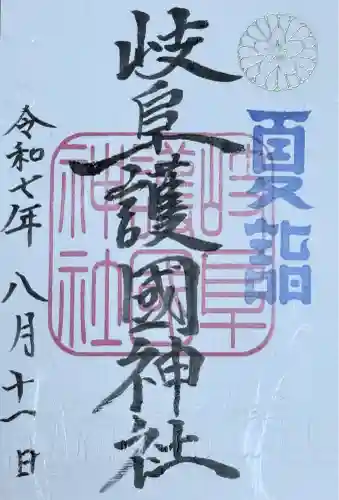 夏詣
岐阜護國神社
岐阜
護國
神社
令和七年 八月 十一日